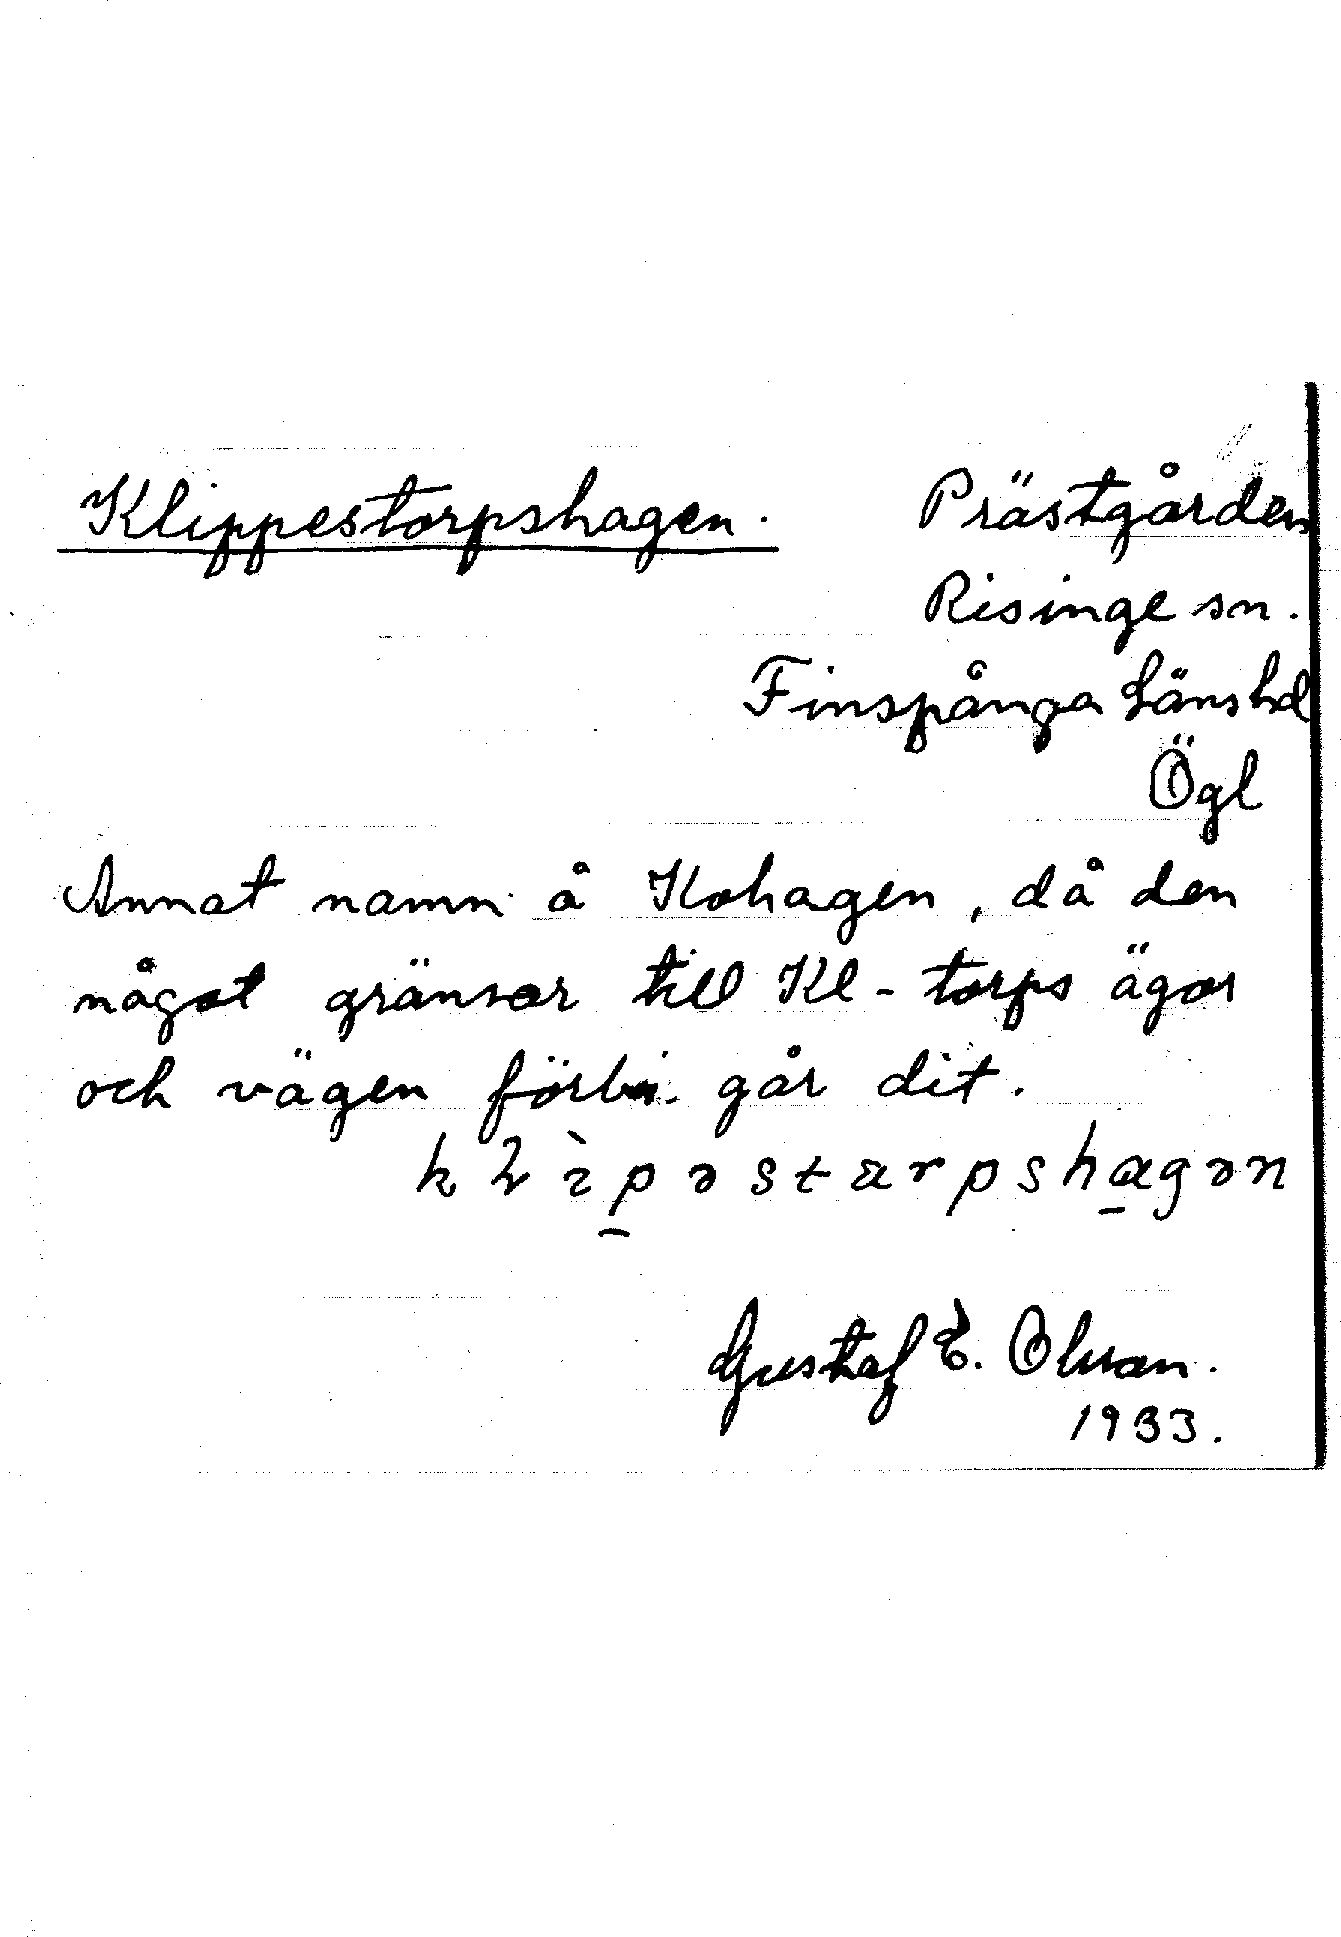 Klippestorpshagen. Prästgården
Risinge sn.
Finspånga Länshd
Ögl
Annat namn å Kohagen, då den
något gränsar till Kl-torps ägor
och vägen förbi går dit.
Gustaf E. Olsson.
1933.